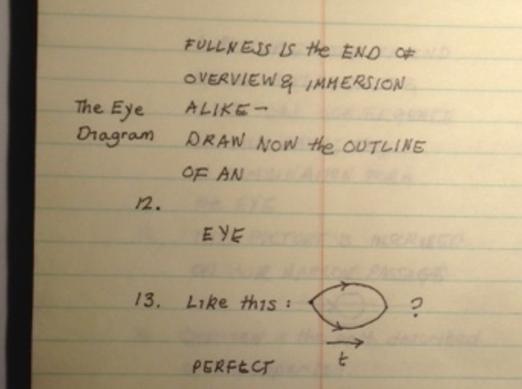 FULLNESS IS the END OF
OVERVIEW & IMMERSION
The Eye ALIKE –
Diagram DRAW NOW the OUTLINE
OF AN
12.
EYE
13. Like this : ?
t
PERFECT